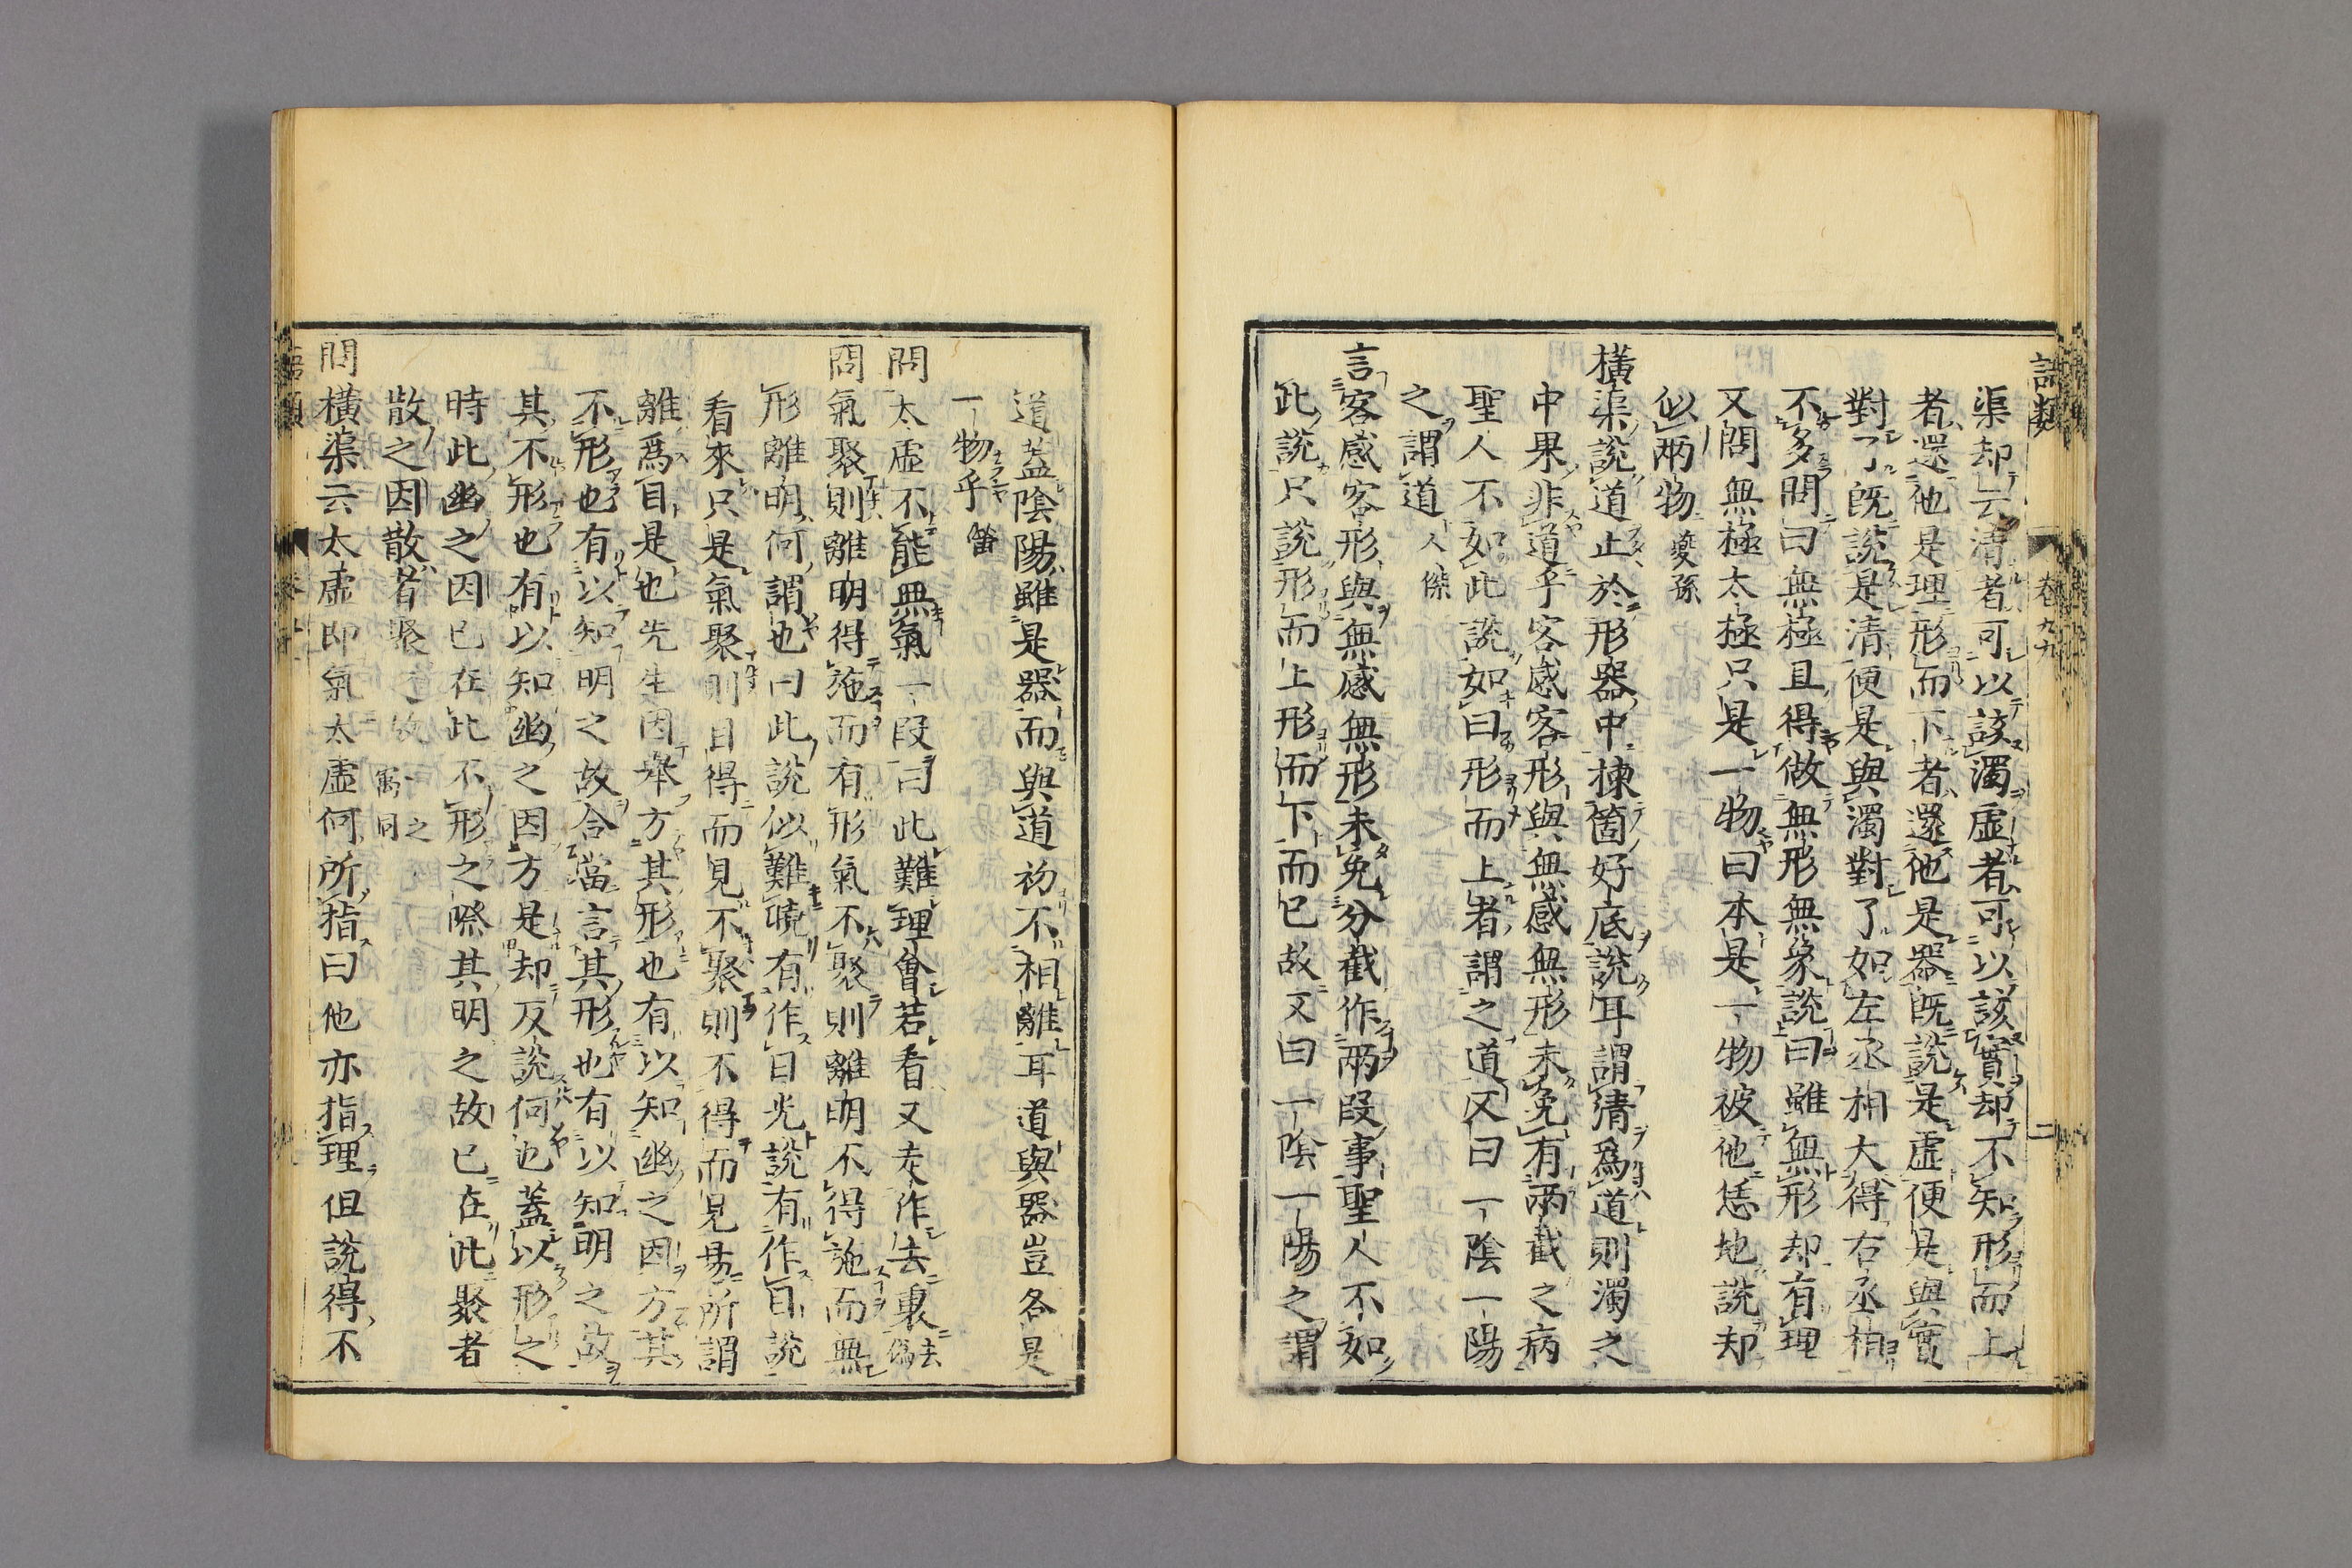 語類
卷九十九
二
渠却云清者可以該濁虛者可以該實却不知形而上
者還他是理形而下者還他是器既說是虛便是與實
對了既說是清便是與濁對了如左丞相大得右丞相
不多問曰無極且得做無形無象說曰雖無形却有理
又問無極太極只是一物曰本是一物被他恁地說却
似兩物 夔孫
橫渠說道止於形器中揀箇好底說耳謂清爲道則濁之
中果非道乎客感客形與無感無形未免有兩截之病
聖人不如此說如曰形而上者謂之道又曰一陰一陽
之謂道 人傑
言客感客形與無感無形未免分截作兩段事聖人不如
此說只說形而上形而下而已故又曰一陰一陽之謂
道蓋陰陽雖是器而與道初不相離耳道與器豈各是
一物乎 㽦
問太虛不能無氣一段曰此難理會若看又走作去裏 去僞
問氣聚則離明得施而有形氣不聚則離明不得施而無
形離明何謂也曰此說似難曉有作日光說有作目說
看來只是氣聚則目得而見不聚則不得而見易所謂
離爲目是也先生因舉方其形也有以知幽之因方其
不形也有以知明之故合當言其形也有以知明之故
其不形也有以知幽之因方是却反說何也蓋以形之
時此幽之因已在此不形之際其明之故已在此聚者
散之因散者聚之故 一之 寓同
問橫渠云太虛即氣太虛何所指曰他亦指理但說得不
語類